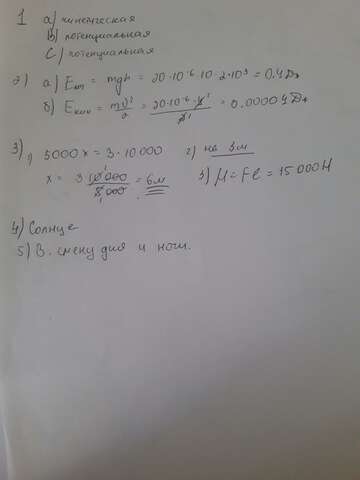 1 a) кинетическая
b) потенциальная
c) потенциальная
2) a) Eп = mgh = 20·10⁻⁶·10·2·10³ = 0.4 Дж
б) Eкин = mv²/2 = 20·10⁻⁶·4²/2 = 0.00004 Дж
3) 1) 5000x = 3·10.000 2) на 3м
x = 3 10 000/5 000 = 6м 3) M = Fl = 15 000 Н
4) Солнце
5) В. смену дня и ночи.